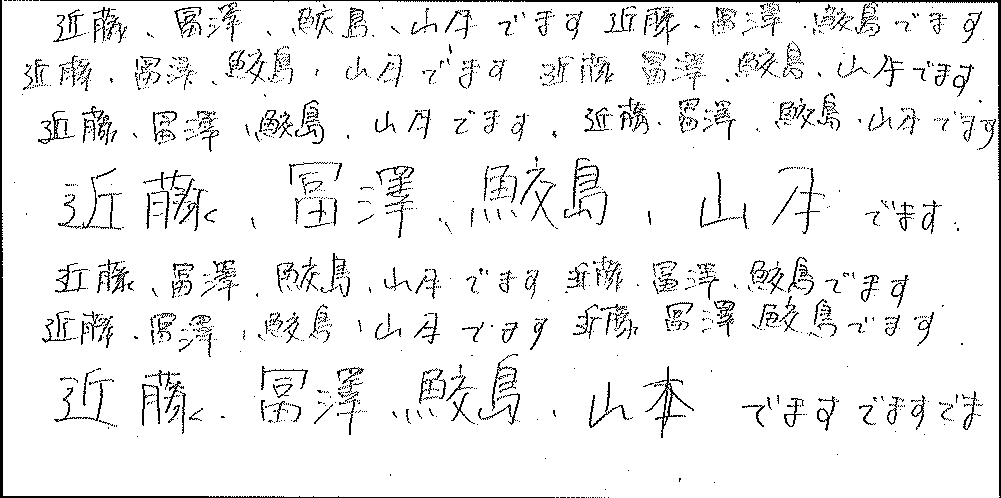 近藤、冨澤、鮫島、山本でます 近藤、冨澤、鮫島でます
近藤、冨澤、鮫島、山本でます 近藤 冨澤、鮫島、山本でます
近藤、冨澤、鮫島、山本でます、近藤、冨澤、鮫島、山本でます
近藤、冨澤、鮫島、山本でます.
近藤、冨澤、鮫島、山本でます 近藤、冨澤、鮫島でます
近藤、冨澤、鮫島、山本でます 近藤 冨澤 鮫島でます
近藤、冨澤、鮫島、山本 でますでますでま